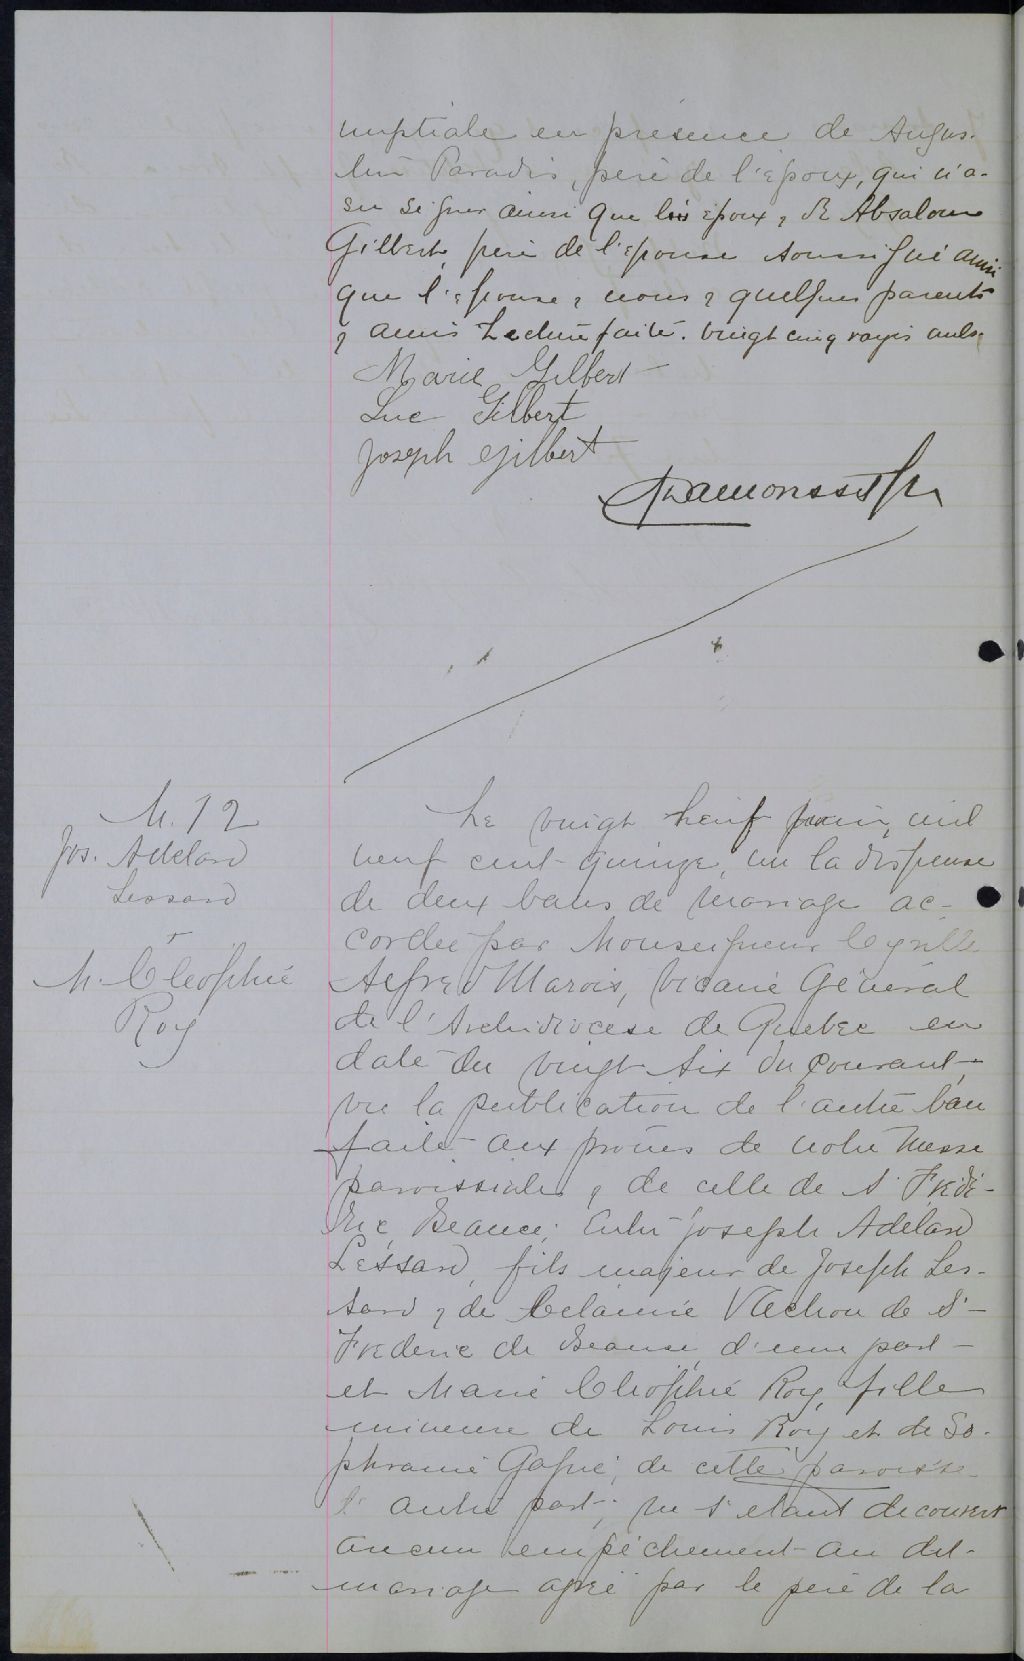 nuptiale en présence de Augus-
tin Paradis, père de l'époux, qui n'a
su signer ainsi que l'époux, & de Absalom
Gilbert, père de l'épouse soussigné ainsi
que l'épouse, nous & quelques parents
& amis Lecture faite. vingt cinq rayés nuls.
Marie Gilbert
Luc Gilbert
Joseph Gilbert
M. 12
Jos. Adelard
Lessard
+
M. Cleophie
Roy
Le vingt neuf juin, mil
neuf cent quinze, vu la dispense
de deux bans de mariage ac-
cordée par Monseigneur Cyrille
Alfred Marois, Vicaire Général
de l'Archidiocèse de Quebec en
date du vingt six du courant,
vu la publication de l'autre ban
faite aux prônes de notre messe
paroissiale, & de celle de St Fréde-
ric, Beauce; Entre Joseph Adélard
Lessard, fils majeur de Joseph Les-
sard & de Célanire Vachon de St
Frederic de Beauce, d'une part
et Marie Cléophie Roy, fille
mineure de Louis Roy et de So-
phranie Gagné, de cette paroisse
d'autre part; ne s'étant découvert
aucun empêchement au dit
mariage agréé par le père de la